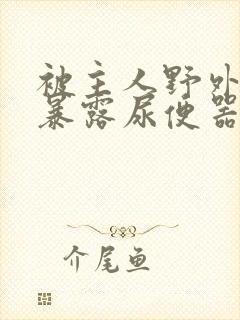 被主人野外
暴露尿便器
介尾鱼